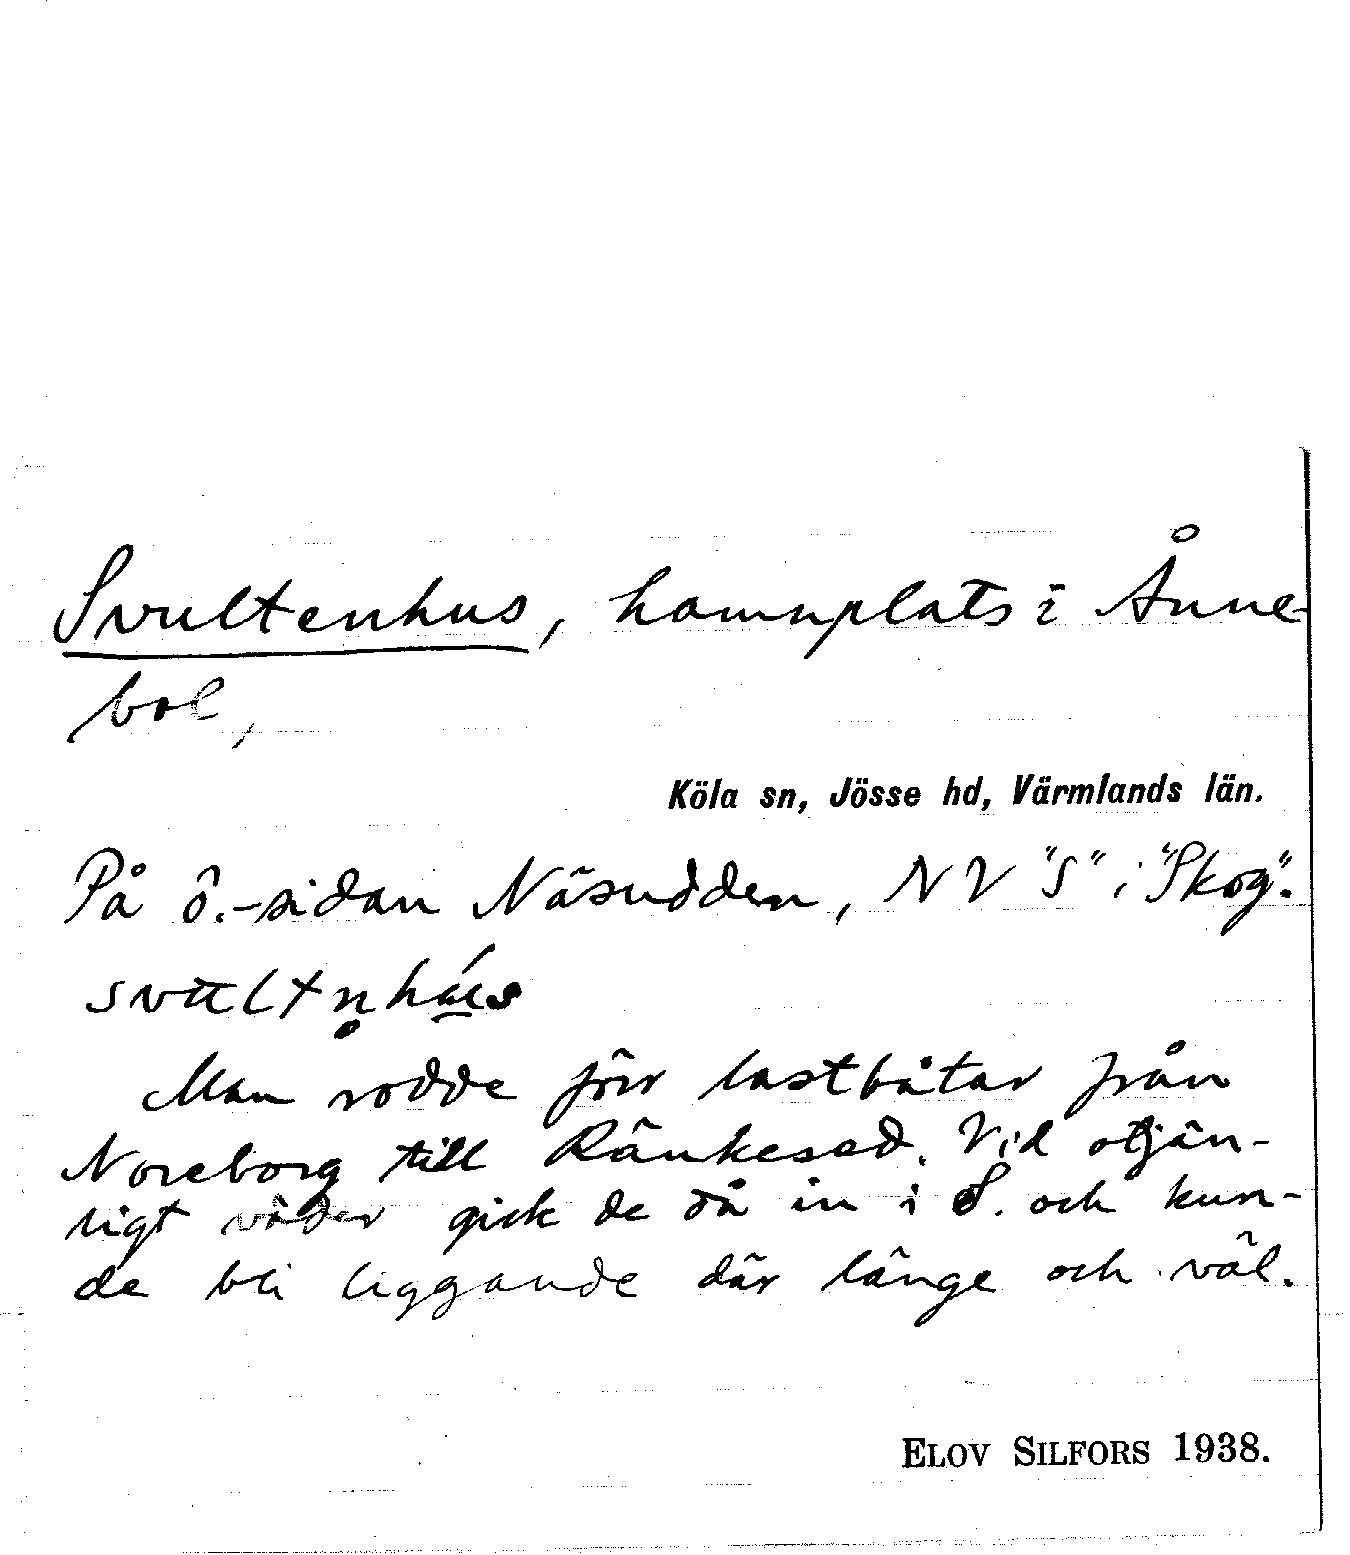 Svultenhus, hamnplats i Ånne-
bol,
Köla sn, Jösse hd, Värmlands län.
På ö.-sidan Näsudden, NV "S" i "Skog".
Man rodde förr lastbåtar från
Noreborg till Ränkesed. Vid otjän-
ligt väder gick de då in i S. och kun-
de bli liggande där länge och väl.
ELOV SILFORS 1938.